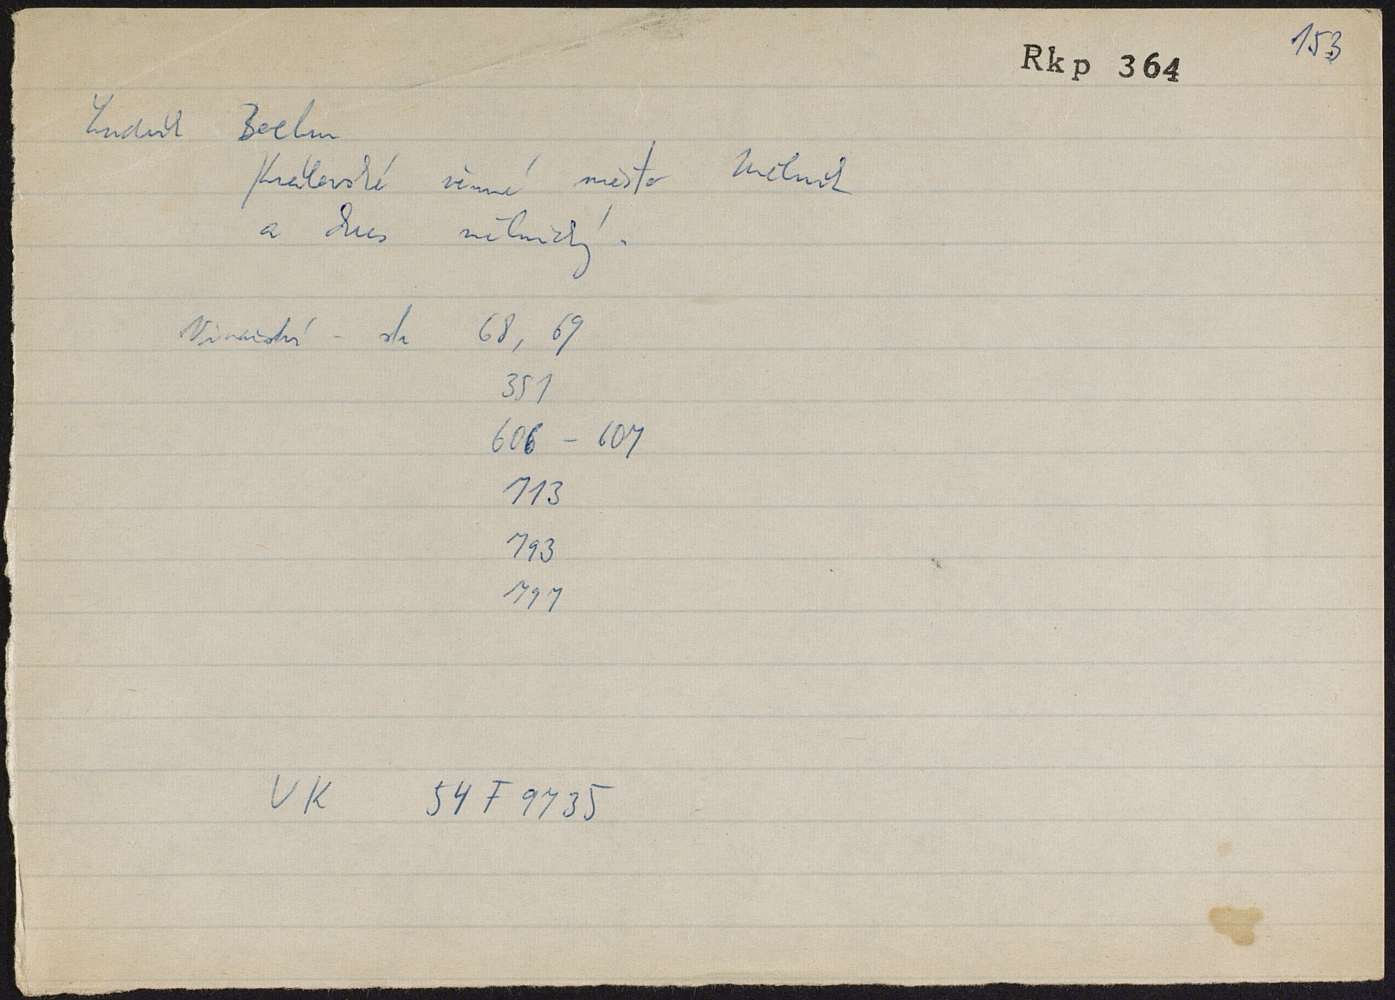 153
Rkp 364
Ludvík Boehm
Královské věnné město Mělník
a okres mělnický.
Vinařství - str 68, 69
351
606 - 607
713
793
797
UK 54 F 9735